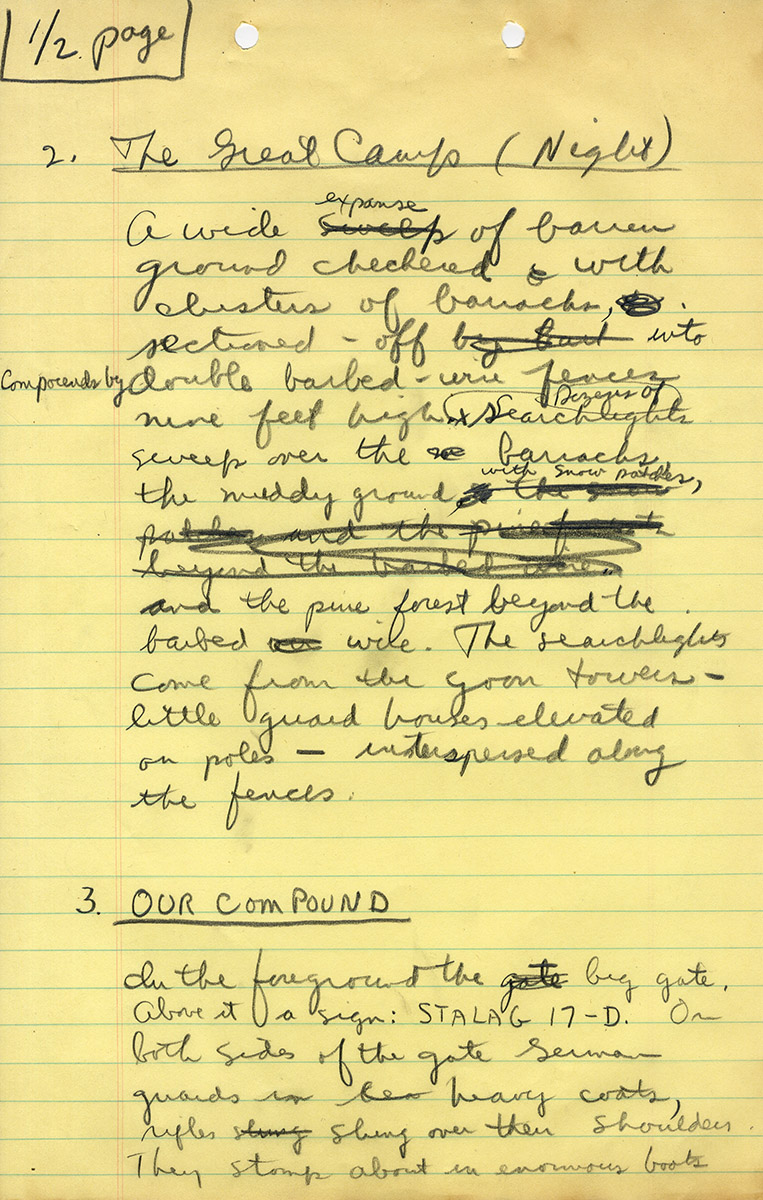 1/2 page
2. The Great Camp (Night)
expanse
A wide sweep of barren
ground checkered with
clusters of barracks,
sectioned-off by barb into
Compounds by double barbed-wire fences
Dozens of
nine feet high. Searchlights
sweep over the barracks,
with snow patches,
the muddy ground the snow
patches and the pine forest
beyond the barbed wire.
and the pine forest beyond the
barbed wire. The searchlights
come from the goon towers -
little guard houses elevated
on poles — interspersed along
the fences.
3. OUR COMPOUND
In the foreground the gate big gate.
Above it a sign: STALAG 17-D. On
both sides of the gate German
guards in heavy coats,
rifles slung slung over their shoulders.
They stomp about in enormous boots